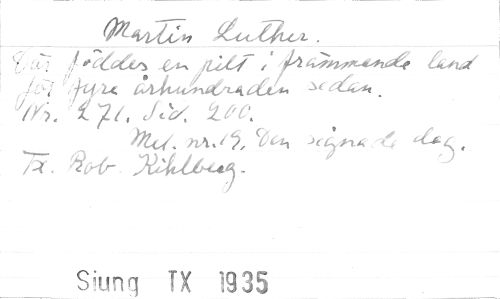 Martin Luther.
Där föddes en pilt i främmande land
för fyra århundraden sedan.
Nr. 271. Sid. 200.
Mel. nr. 19. Den signade dag.
Tx. Rob. Kihlberg.
Siung TX 1935